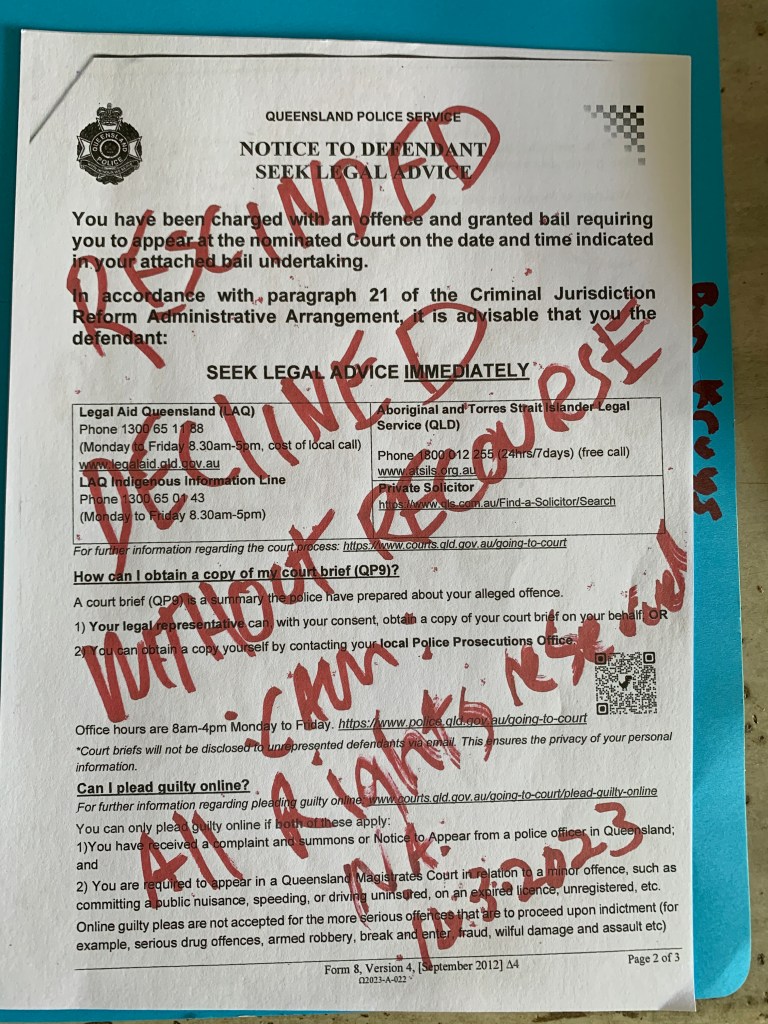 QUEENSLAND POLICE SERVICE
QUEENSLAND
POLICE
NOTICE TO DEFENDANT
SEEK LEGAL ADVICE
You have been charged with an offence and granted bail requiring
you to appear at the nominated Court on the date and time indicated
in your attached bail undertaking.
In accordance with paragraph 21 of the Criminal Jurisdiction
Reform Administrative Arrangement, it is advisable that you the
defendant:
SEEK LEGAL ADVICE IMMEDIATELY
Legal Aid Queensland (LAQ)
Phone 1300 65 11 88
(Monday to Friday 8.30am-5pm, cost of local call)
www.legalaid.qld.gov.au
LAQ Indigenous Information Line
Phone 1300 65 01 43
(Monday to Friday 8.30am-5pm)
Aboriginal and Torres Strait Islander Legal
Service (QLD)
Phone 1800 012 255 (24hrs/7days) (free call)
www.atsils.org.au
Private Solicitor
https://www.qls.com.au/Find-a-Solicitor/Search
For further information regarding the court process: https://www.courts.qld.gov.au/going-to-court
How can I obtain a copy of my court brief (QP9)?
A court brief (QP9) is a summary the police have prepared about your alleged offence.
1) Your legal representative can, with your consent, obtain a copy of your court brief on your behalf, OR
2) You can obtain a copy yourself by contacting your local Police Prosecutions Office.
Office hours are 8am-4pm Monday to Friday. https://www.police.qld.gov.au/going-to-court
*Court briefs will not be disclosed to unrepresented defendants via email. This ensures the privacy of your personal
information.
Can I plead guilty online?
For further information regarding pleading guilty online: www.courts.qld.gov.au/going-to-court/plead-guilty-online
You can only plead guilty online if both of these apply:
1)You have received a complaint and summons or Notice to Appear from a police officer in Queensland;
and
2) You are required to appear in a Queensland Magistrates Court in relation to a minor offence, such as
committing a public nuisance, speeding, or driving uninsured, on an expired licence, unregistered, etc.
Online guilty pleas are not accepted for the more serious offences that are to proceed upon indictment (for
example, serious drug offences, armed robbery, break and enter, fraud, wilful damage and assault etc)
Form 8, Version 4, [September 2012] Δ4
Ω2023-A-022
Page 2 of 3
RESCINDED
DECLINED
WITHOUT RECOURSE
All Rights reserved
10.3.2023